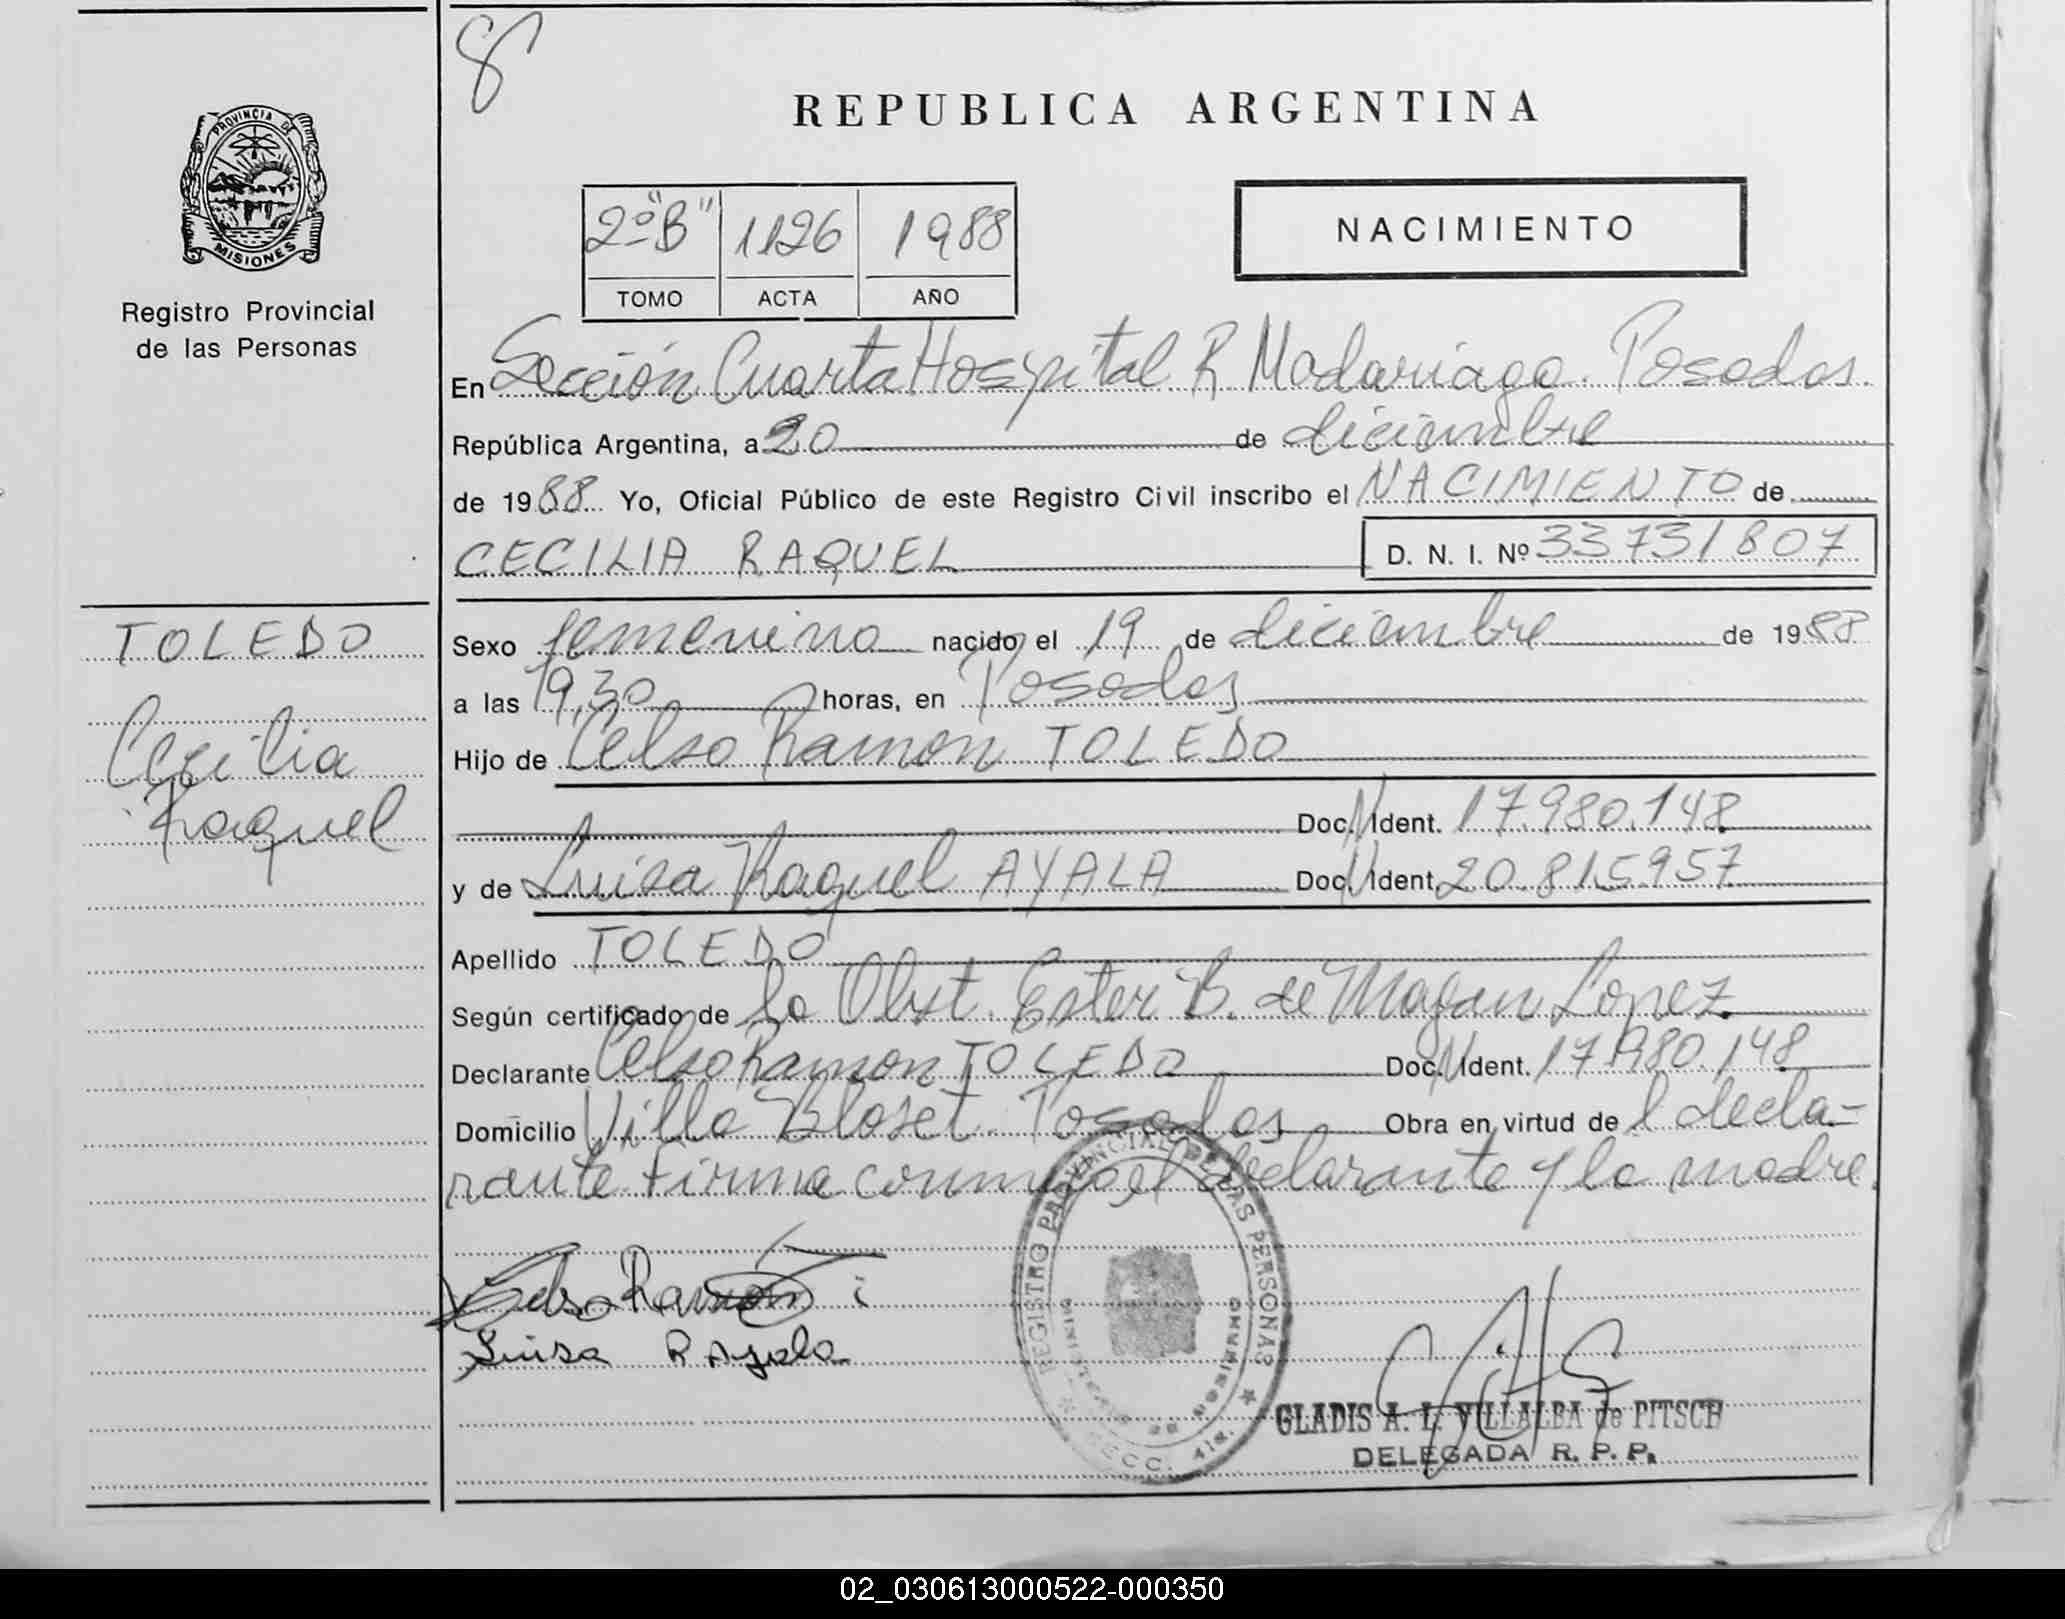 8
PROVINCIA DE
MISIONES
Registro Provincial
de las Personas
TOLEDO
Cecilia
Raquel
REPUBLICA ARGENTINA
2º "B" 1126 1988
TOMO ACTA AÑO
NACIMIENTO
En Sección Cuarta Hospital R Madariaga. Posadas.
República Argentina, a 20 de diciembre
de 1988 Yo, Oficial Público de este Registro Civil inscribo el NACIMIENTO de
CECILIA RAQUEL D. N. I. Nº 33731807
Sexo femenino nacido el 19 de diciembre de 1988
a las 19,30 horas, en Posadas
Hijo de Celso Ramon TOLEDO
Doc. N Ident. 17.980.148
y de Luisa Raquel AYALA Doc. N Ident. 20.815957
Apellido TOLEDO
Según certificado de la Obst. Ester B. de Magan Lopez
Declarante Celso Ramon TOLEDO Doc. N Ident. 17.980.148
Domicilio Villa Bloset. Posadas Obra en virtud de l decla=
rante firma conmigo el declarante y la madre.
Celso Ramon
Luisa R Ayala
REGISTRO PROVINCIAL DE LAS PERSONAS
MINISTERIO DE GOBIERNO
SECC. 4ta.
GLADIS A. L. VILLALBA de PITSCH
DELEGADA R. P. P.
02_030613000522-000350